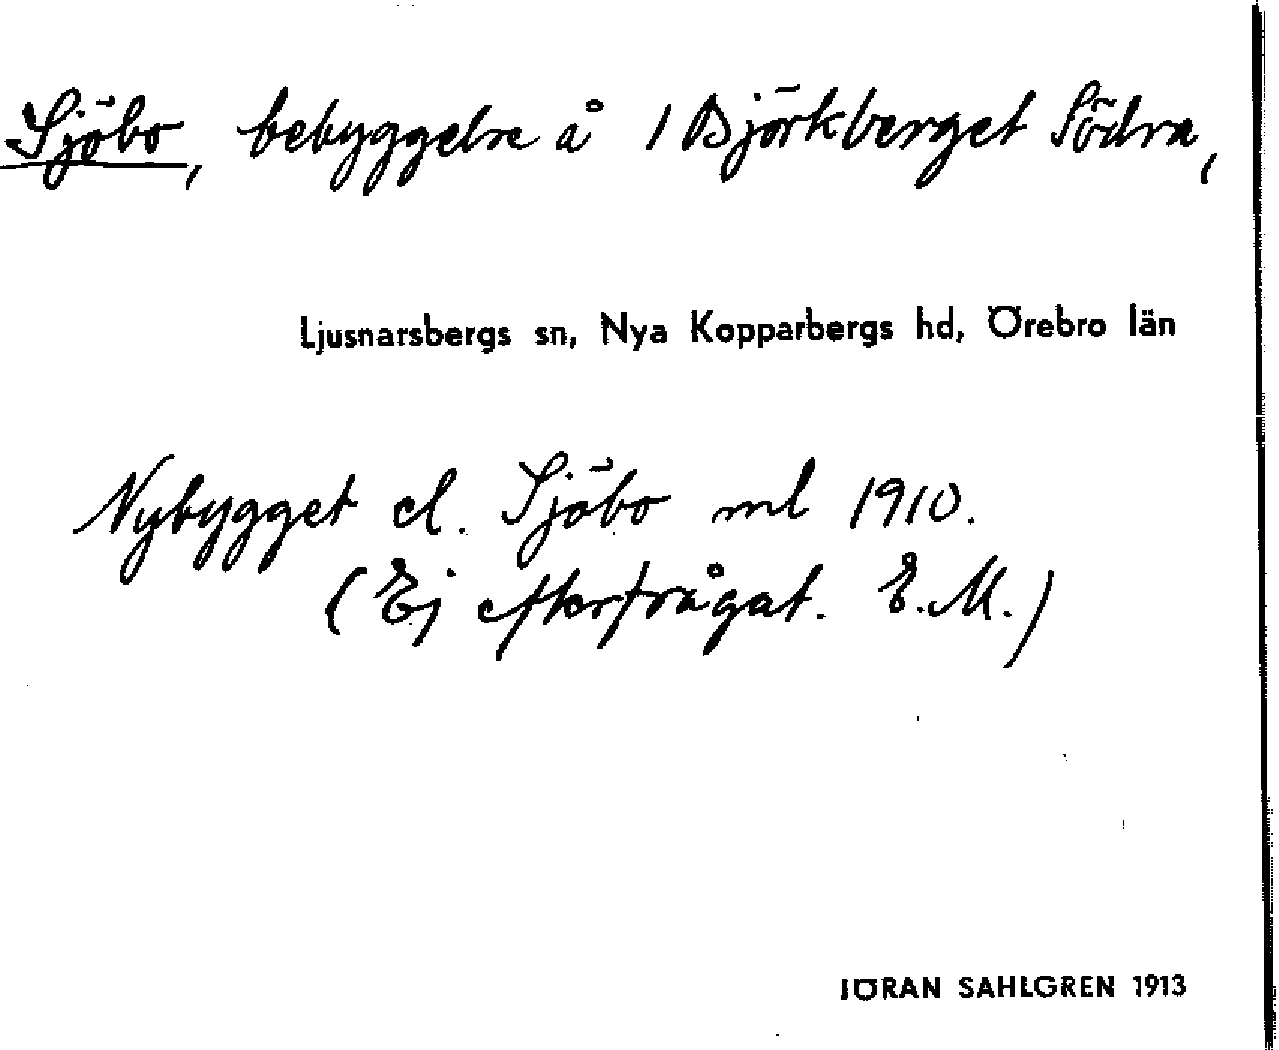 Sjöbo, bebyggelse å 1 Björkberget Södra,
Ljusnarsbergs sn, Nya Kopparbergs hd, Örebro län
Nybygget el. Sjöbo ml 1910.
(Ej efterfrågat. E.M.)
JÖRAN SAHLGREN 1913